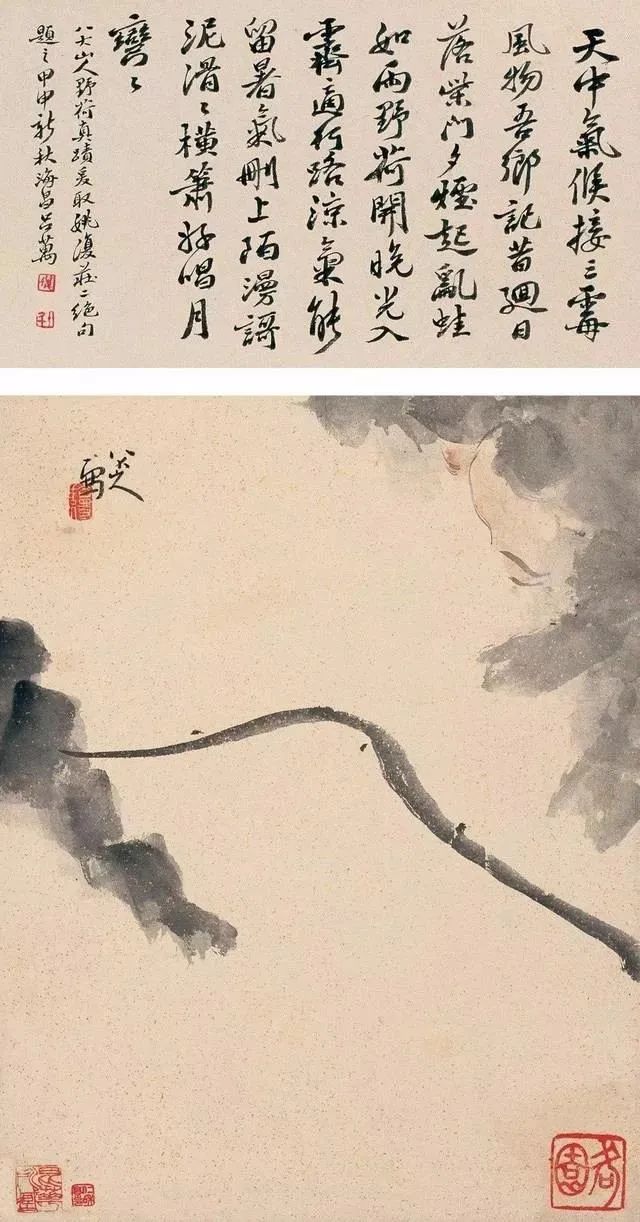 天中氣候接三霉
風物吾鄉記昔廻日
落柴門夕煙起亂蛙
如雨野荷開晚光入
霽適行路涼氣能
留暑氣刪上陌漫謌
泥滑〻橫簫好唱月
彎〻
八大山人野荷真蹟爰取姚復莊二絕句
題之甲申新秋海昌呂萬
八大